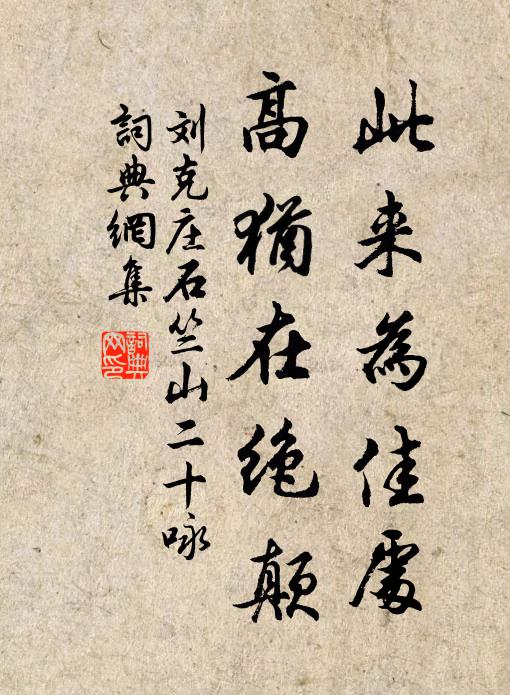 此来為佳處
高猶在绝颠
刘克庄石竺山二十咏
詞典網集
詞典
网印